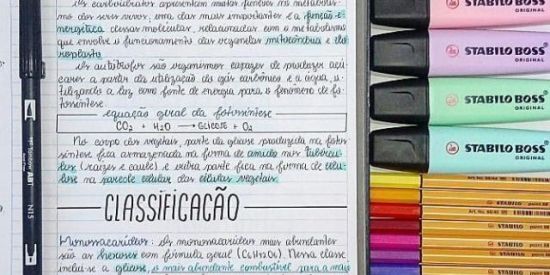 Os carboidratos apresentam maior função no metabolis-
mo dos seres vivos, uma das mais importantes é a função e-
nergética dessas moléculas, relacionadas com o metabolismo
que envolve o funcionamento das organelas mitocôndria e clo
roplasto.
Os autótrofos são organismos capazes de produzir açú
cares a partir da utilização do gás carbônico e a água, u-
tilizando a luz como fonte de energia para o fenômeno de fo
tossíntese.
equação geral da fotossíntese
CO2 + H2O → GLICOSE + O2
No corpo dos vegetais, parte da glicose produzida na fotos
síntese fica armazenada na forma de amido nos tubércu
los (raízes e caule) e outra parte fica na forma de celu-
lose na parede celular das células vegetais.
CLASSIFICAÇÃO
Monossacarídeos: Os monossacarídeos mais abundantes
são as hexoses com fórmula geral (C6H12O6). Nessa classe
inclui-se a glicose, o mais abundante combustível para a maio
ABT
N15
STABILO BOSS
ORIGINAL
STABILO BOSS
ORIGINAL
STABILO BOSS
ORIGINAL
STABILO BOSS
ORIGINAL
STABILO
STABILO
STABILO
STABILO
STABILO